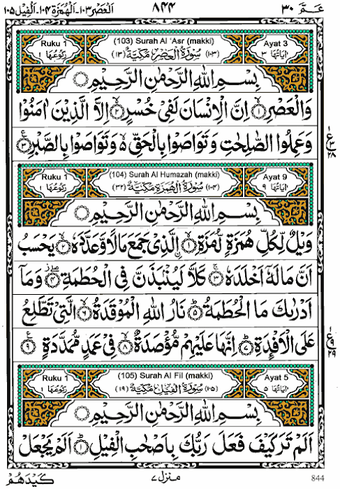 اَلْعَصْر ١٠٣، اَلْهُمَزَة ١٠٤، اَلْفِيْل ١٠٥ ٨٤٤ عَمَّ ٣٠
Ruku 1 (103) Surah Al 'Asr (makki) Ayat 3
رُكُوْعُهَا ١ (١٠٣) سُوْرَةُ الْعَصْرِ مَكِّيَّةٌ (١٣) اٰيَاتُهَا ٣
بِسْمِ اللّٰهِ الرَّحْمٰنِ الرَّحِيْمِ
وَالْعَصْرِ ۙ‏﴿١﴾ اِنَّ الْاِنْسَانَ لَفِىْ خُسْرٍ ۙ‏﴿٢﴾ اِلَّا الَّذِيْنَ اٰمَنُوْا
وَعَمِلُوا الصّٰلِحٰتِ وَتَوَاصَوْا بِالْحَقِّ ۙ وَتَوَاصَوْا بِالصَّبْرِ ﴿٣﴾
Ruku 1 (104) Surah Al Humazah (makki) Ayat 9
رُكُوْعُهَا ١ (١٠٤) سُوْرَةُ الْهُمَزَةِ مَكِّيَّةٌ (٣٢) اٰيَاتُهَا ٩
بِسْمِ اللّٰهِ الرَّحْمٰنِ الرَّحِيْمِ
وَيْلٌ لِّكُلِّ هُمَزَةٍ لُّمَزَةٍ ۙ‏﴿١﴾ اۨلَّذِىْ جَمَعَ مَالًا وَّعَدَّدَهٗ ۙ‏﴿٢﴾ يَحْسَبُ
اَنَّ مَالَهٗۤ اَخْلَدَهٗ ۚ‏﴿٣﴾ كَلَّا لَيُنْۢبَذَنَّ فِى الْحُطَمَةِ ۖ‏﴿٤﴾ وَمَاۤ
اَدْرٰٮكَ مَا الْحُطَمَةُ ؕ‏﴿٥﴾ نَارُ اللّٰهِ الْمُوْقَدَةُ ۙ‏﴿٦﴾ الَّتِىْ تَطَّلِعُ
عَلَى الْاَفْئِدَةِ ؕ‏﴿٧﴾ اِنَّهَا عَلَيْهِمْ مُّؤْصَدَةٌ ۙ‏﴿٨﴾ فِىْ عَمَدٍ مُّمَدَّدَةٍ ﴿٩﴾
Ruku 1 (105) Surah Al Fil (makki) Ayat 5
رُكُوْعُهَا ١ (١٠٥) سُوْرَةُ الْفِيْلِ مَكِّيَّةٌ (١٩) اٰيَاتُهَا ٥
بِسْمِ اللّٰهِ الرَّحْمٰنِ الرَّحِيْمِ
اَلَمْ تَرَ كَيْفَ فَعَلَ رَبُّكَ بِاَصْحٰبِ الْفِيْلِ ؕ‏﴿١﴾ اَلَمْ يَجْعَلْ
كَيْدَهُمْ منزل ٧ 844